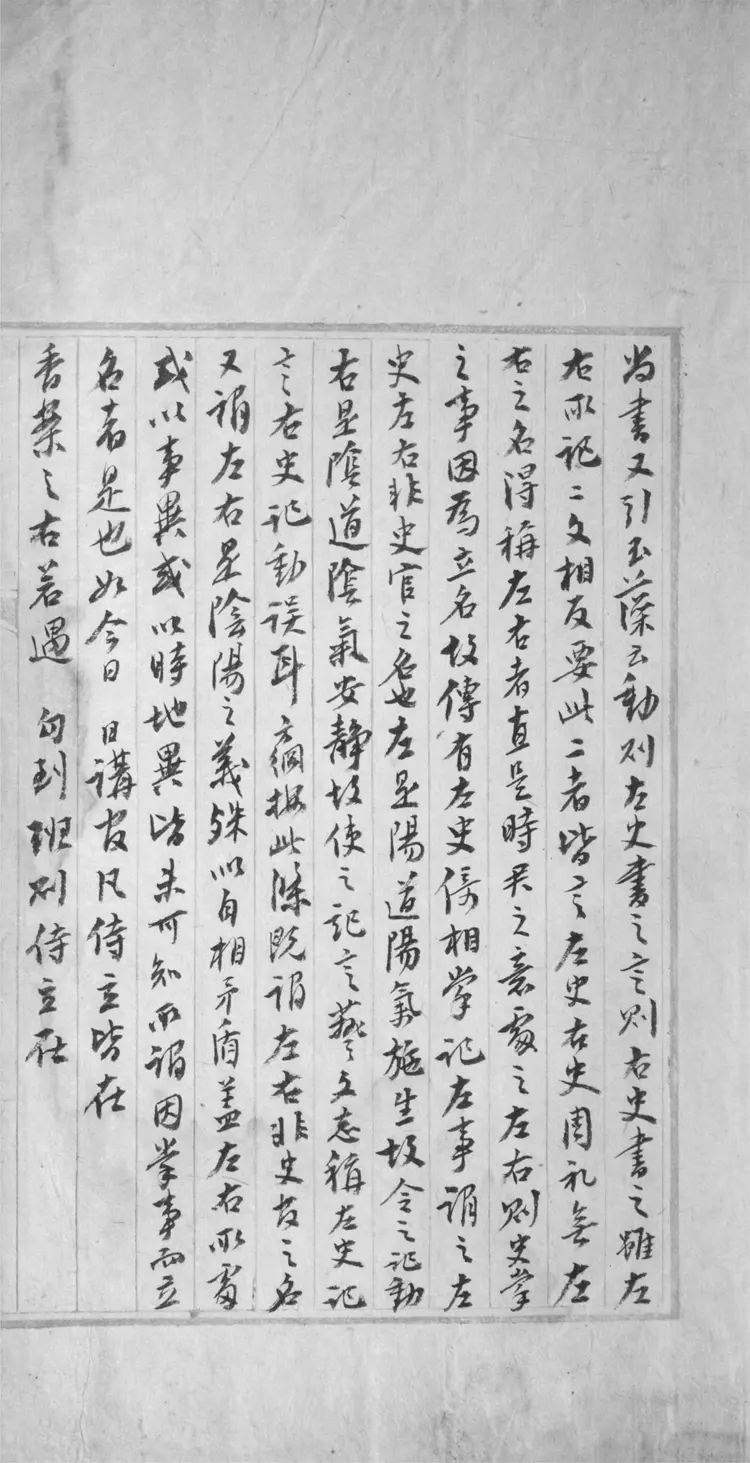 尚書又引玉藻云動則左史書之言則右史書之雖左
右所記二文相反要此二者皆言左史右史周礼無左
右之名得稱左右者直是時君之意處之左右則史掌
之事因為立名故傳有左史倚相掌記左事謂之左
史左右非史官之名也左是陽道陽氣施生故令之記動
右是陰道陰氣安静故使之記言藝文志稱左史記
言右史記動误耳 綱按此條既謂左右非史官之名
又謂左右是陰陽之義殊以自相矛盾盖左右所處
或以事異或以時地異皆未可知所謂因掌事而立
名者是也如今日 日講官凡侍立皆在
香案之右若遇 勾到班则侍立在